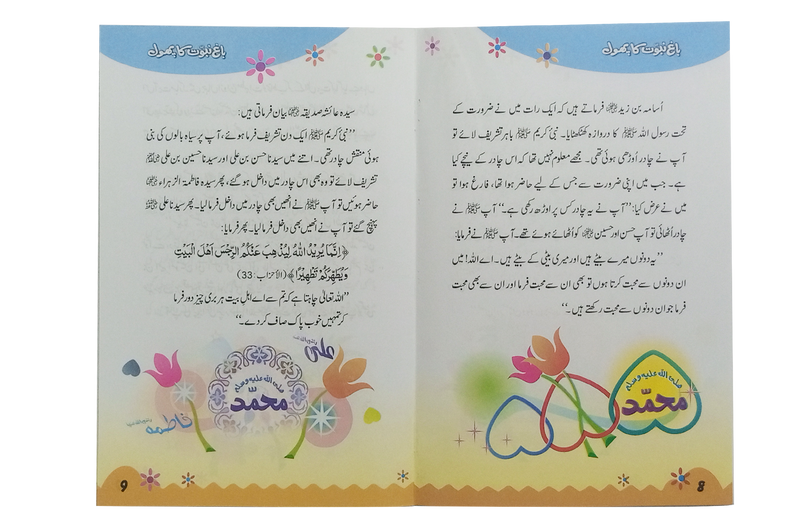 باغِ نبوت کا پھول
اُسامہ بن زید رضی اللہ عنہ فرماتے ہیں کہ ایک رات میں نے ضرورت کے
تحت رسول اللہ ﷺ کا دروازہ کھٹکھٹایا۔ نبی کریم ﷺ باہر تشریف لائے تو
آپ نے چادر اُوڑھی ہوئی تھی۔ مجھے معلوم نہیں تھا کہ اس چادر کے نیچے کیا
ہے۔ جب میں اپنی ضرورت سے جس کے لیے حاضر ہوا تھا، فارغ ہوا تو
میں نے عرض کیا: ’’آپ نے یہ چادر کس پر اوڑھ رکھی ہے۔‘‘ آپ ﷺ نے
چادر اُٹھائی تو آپ حسن اور حسین رضی اللہ عنہما کو اُٹھائے ہوئے تھے۔ آپ ﷺ نے فرمایا:
’’یہ دونوں میرے بیٹے ہیں اور میری بیٹی کے بیٹے ہیں۔ اے اللہ! میں
ان دونوں سے محبت کرتا ہوں تو بھی ان سے محبت فرما اور ان سے بھی محبت
فرما جو ان دونوں سے محبت رکھتے ہیں۔‘‘
صلی اللہ علیہ وسلم
محمد
8
باغِ نبوت کا پھول
سیدہ عائشہ صدیقہ رضی اللہ عنہا بیان فرماتی ہیں:
’’نبی کریم ﷺ ایک دن تشریف فرما ہوئے، آپ پر سیاہ بالوں کی بنی
ہوئی منقش چادر تھی۔ اتنے میں سیدنا حسن بن علی اور سیدنا حسین بن علی رضی اللہ عنہم
تشریف لائے تو وہ بھی اس چادر میں داخل ہو گئے، پھر سیدہ فاطمۃ الزہراء رضی اللہ عنہا
حاضر ہوئیں تو آپ ﷺ نے انھیں بھی چادر میں داخل فرما لیا۔ پھر سیدنا علی رضی اللہ عنہ
پہنچ گئے تو آپ نے انھیں بھی داخل فرما لیا۔ پھر فرمایا:
﴿اِنَّمَا يُرِيْدُ اللّٰهُ لِيُذْهِبَ عَنْكُمُ الرِّجْسَ اَهْلَ الْبَيْتِ
وَيُطَهِّرَكُمْ تَطْهِيْرًا﴾ (الأحزاب:33)
’’اللہ تعالیٰ چاہتا ہے کہ تم سے اے اہل بیت ہر بری چیز دور فرما
کر تمہیں خوب پاک صاف کر دے۔‘‘
علی رضی اللہ عنہ
صلی اللہ علیہ وسلم
محمد
فاطمہ رضی اللہ عنہا
9